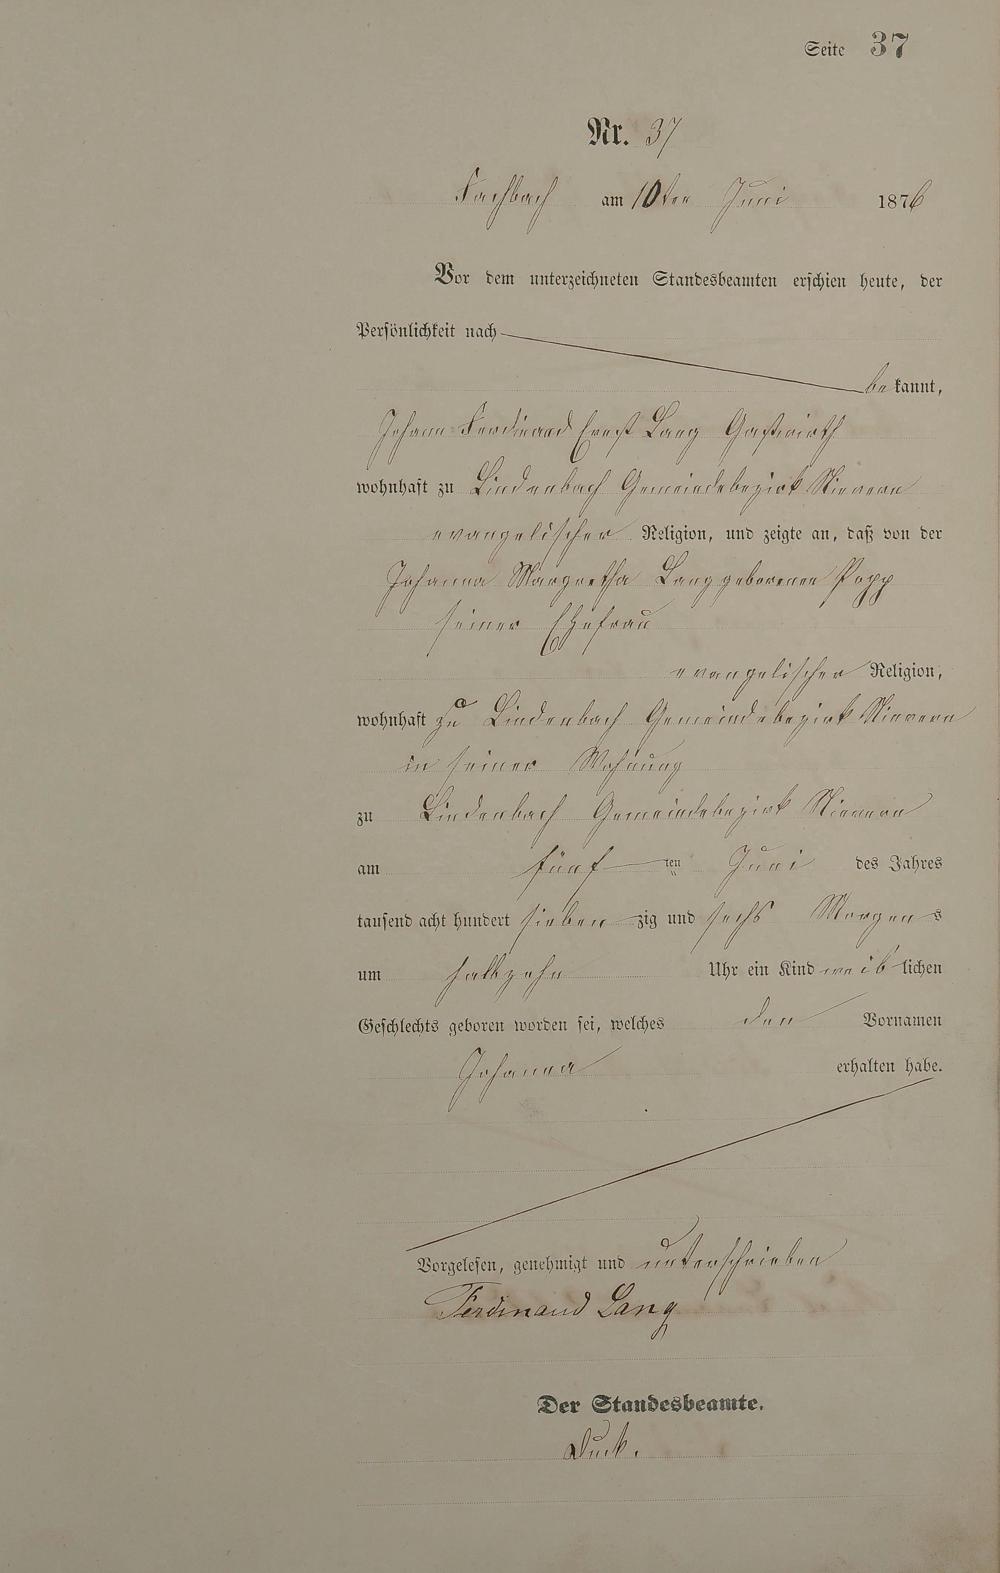 Seite 37
Nr. 37
Fachbach am 10ten Juni 1876
Vor dem unterzeichneten Standesbeamten erschien heute, der
Persönlichkeit nach
bekannt,
Johann Ferdinand Ernst Lang Gastwirth
wohnhaft zu Lindenbach Gemeindebezirk Nievern
evangelischer Religion, und zeigte an, daß von der
Johanna Margretha Lang geborenen Popp
seiner Ehefrau
evangelischer Religion,
wohnhaft zu Lindenbach Gemeindebezirk Nievern
in seiner Wohnung
zu Lindenbach Gemeindebezirk Nievern
am fünften Juni des Jahres
tausend acht hundert siebenzig und sechs Morgens
um halbzehn Uhr ein Kind weiblichen
Geschlechts geboren worden sei, welches den Vornamen
Johanna erhalten habe.
Vorgelesen, genehmigt und unterschrieben
Ferdinand Lang
Der Standesbeamte.